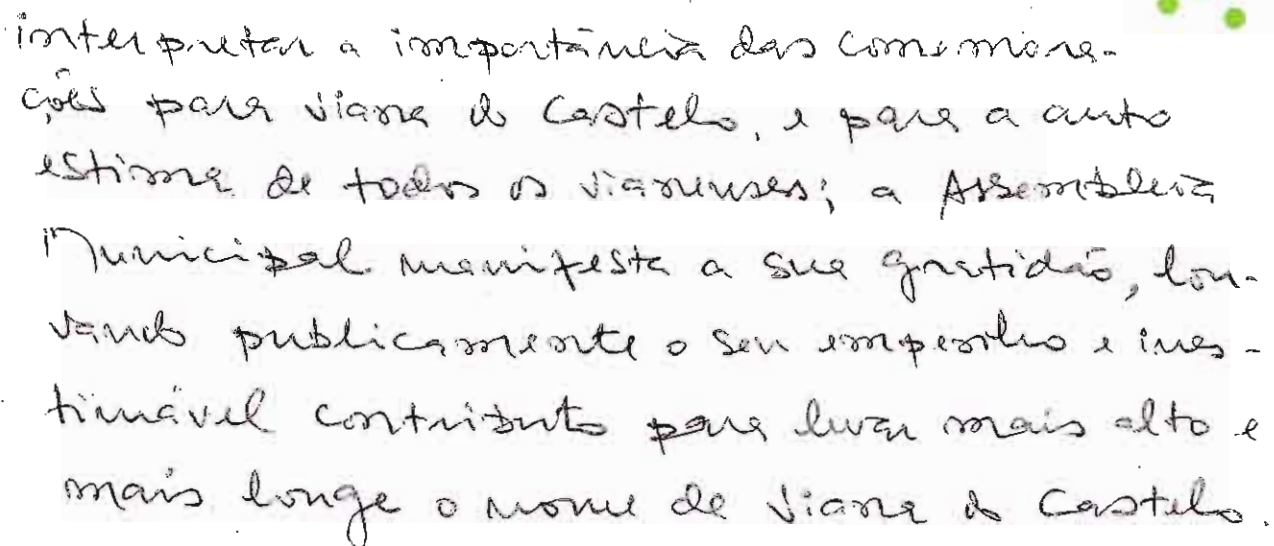 interpretar a importância das comemora-
ções para Viana do Castelo, e para a auto
estima de todos os vianenses; a Assembleia
Municipal manifesta a sua gratidão, lou-
vando publicamente o seu empenho e ines-
timável contributo para levar mais alto e
mais longe o nome de Viana do Castelo.